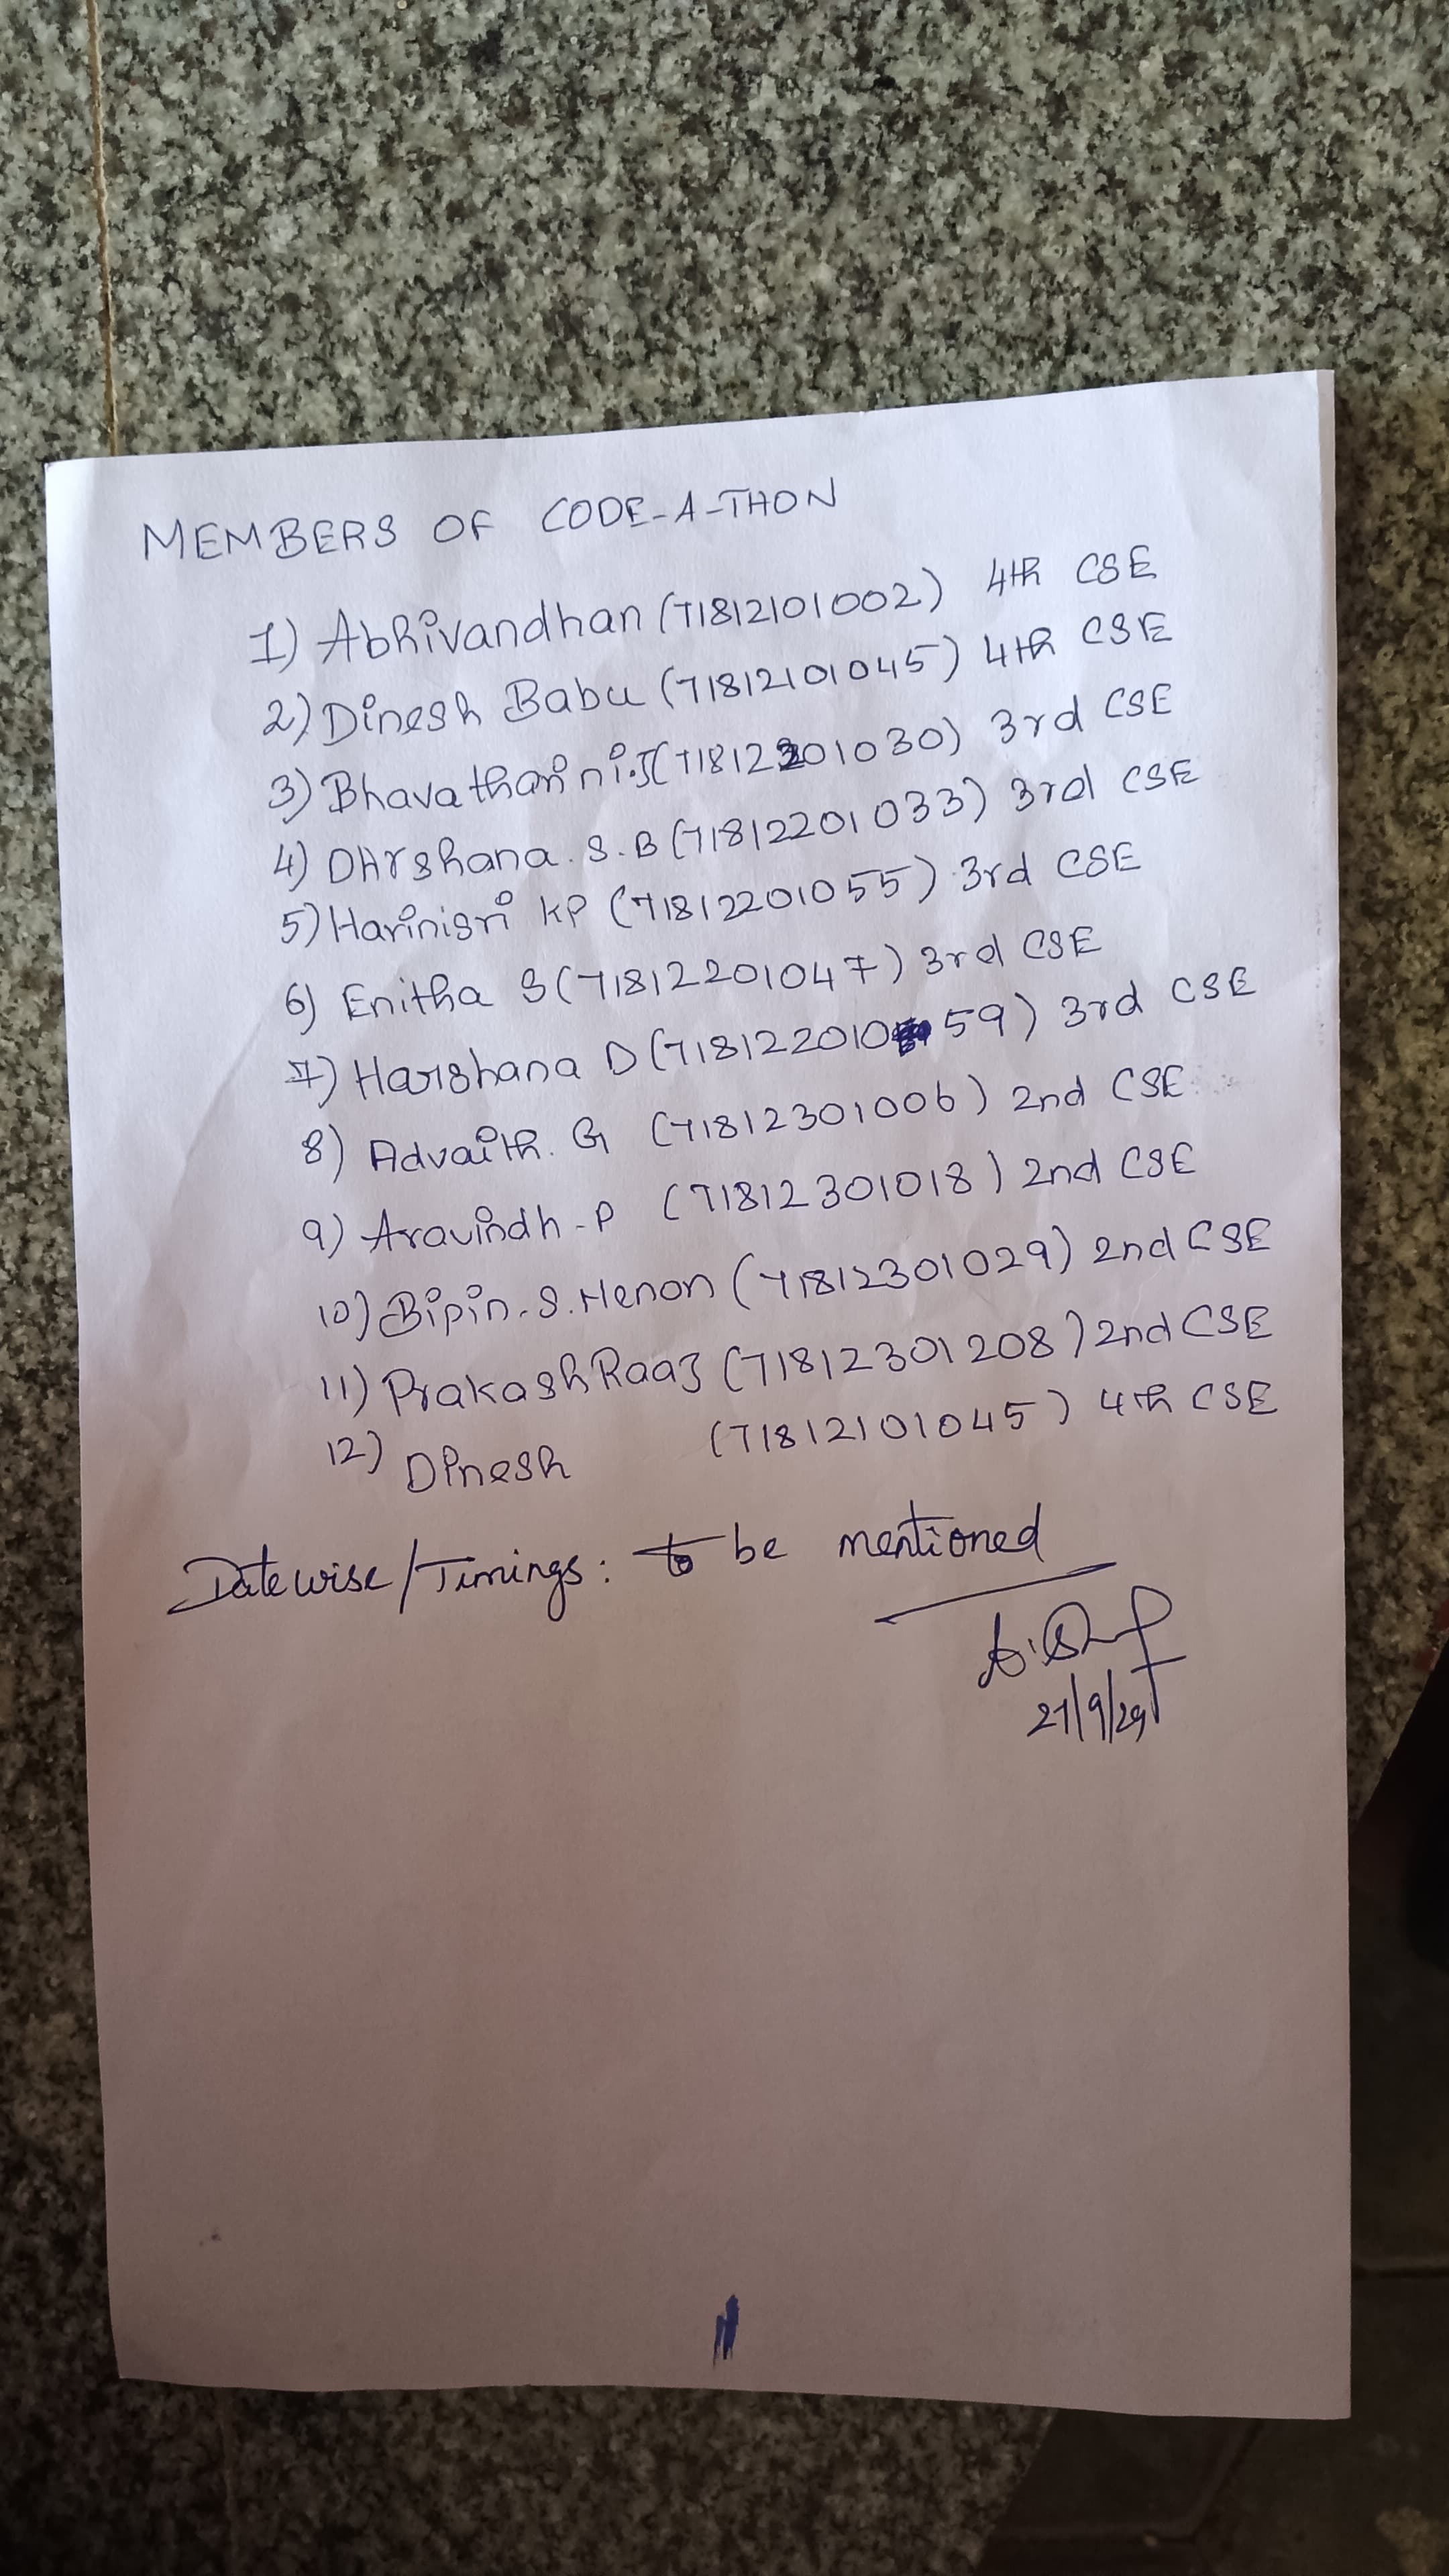 MEMBERS OF CODE-A-THON
1) Abhivandhan (71812101002) 4th CSE
2) Dinesh Babu (71812101045) 4th CSE
3) Bhavatharini.J (71812201030) 3rd CSE
4) DHrshana. S.B (71812201033) 3rd CSE
5) Harinisri KP (71812201055) 3rd CSE
6) Enitha S (71812201047) 3rd CSE
7) Harshana D (71812201059) 3rd CSE
8) Advaith. G (71812301006) 2nd CSE
9) Aravindh-P (71812301018) 2nd CSE
10) Bipin.S.Menon (71812301029) 2nd CSE
11) PrakashRaaj (71812301208) 2nd CSE
12) Dinesh (71812101045) 4th CSE
Datewise/Timings: to be mentioned